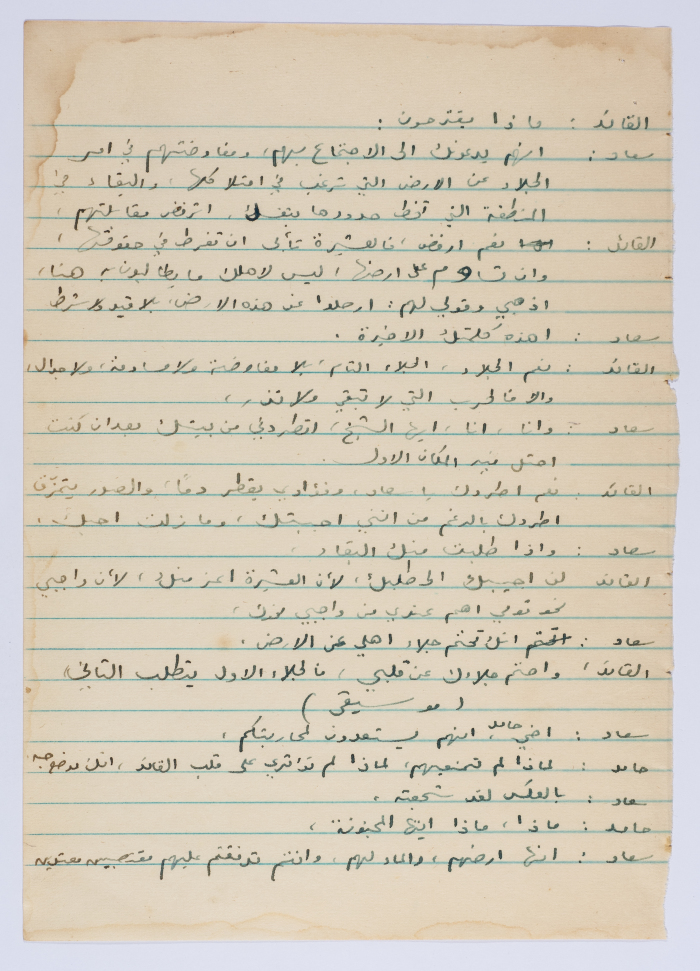 القائد : ماذا يقترحون :
سعاد : انهم يدعونك الى الاجتماع بهم، ومفاوضتهم في امر
الجلاء عن الارض التي ترغب في امتلاكها، والبقاء في
المنطقة التي تخط حدودها بنفسك، اترفض مقابلتهم،
القائد : نعم ارفض، فالعشيرة تأبى ان تفرط في حقوقها،
وان تساوم على ارضها، ليس لاهلك ما يطالبون به هنا،
اذهبي وقولي لهم: ارحلوا عن هذه الارض، بلا قيد ولا شرط
سعاد : اهذه كلمتك الاخيرة .
القائد : نعم الجلاء، الجلاء التام، بلا مفاوضة ولا مساومة، ولا جدال،
والا فالحرب التي لا تبقي ولا تذر،
سعاد : وانا، انا، ايها الشيخ، اتطردني من بيتك بعد ان كنت
احتل فيه المكان الاول .
القائد : نعم اطردك يا سعاد، وفؤادي يقطر دمًا، والصدر يتمزق
اطردك بالرغم من انني احببتك، وما زلت احبك .
سعاد : واذا طلبت منك البقاء،
القائد لن اجيبك الى طلبك، لأن العشيرة اعز منك، لأن واجبي
نحو قومي اهم عندي من واجبي نحوك،
سعاد : انك تحتم جلاء اهلي عن الارض .
القائد : واحتم جلاءك عن قلبي، فالجلاء الاول يتطلب الثاني،
( موسيقى )
سعاد : اخي حامد، انهم يستعدون لمحاربتكم،
حامد : لماذا لم تمنعيهم، لماذا لم تؤثري على قلب القائد، انك موضع حبه
سعاد : بالعكس لقد شجعته،
حامد : ماذا، ماذا ايتها المجنونة،
سعاد : انها ارضهم، والماء لهم، وانتم قدمتم عليهم مغتصبين معتدين